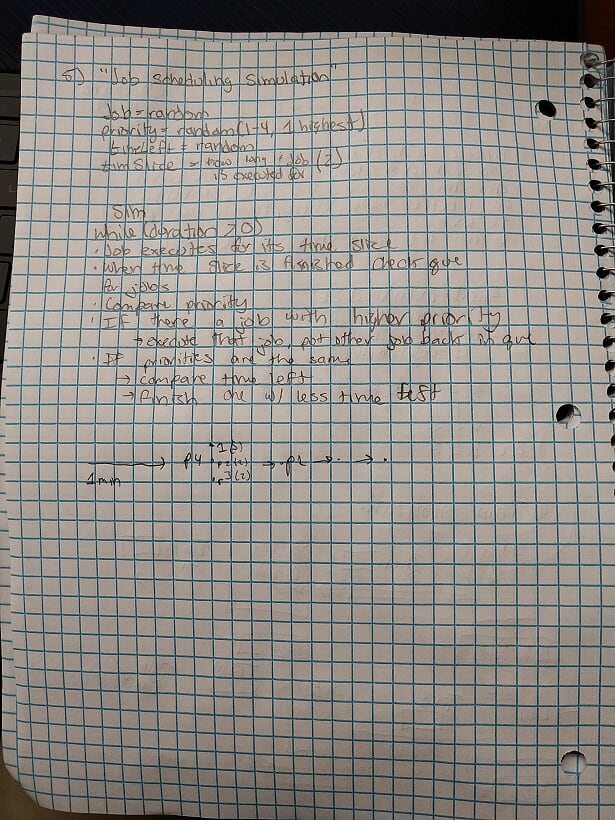 5) "Job scheduling simulation"
Job = random
priority = random(1-4, 1 highest)
timeLeft = random
timSlice = how long job (2)
is executed for
Sim
while (duration > 0)
· Job executes for its time slice
· when time slice is finished check que
for jobs
· Compare priority
· IF there a job with higher priority
→ execute that job put other job back in que
· IF priorities are the same
→ compare time left
→ finish one w/ less time left
1min → P4
p2(2)
p3(2)